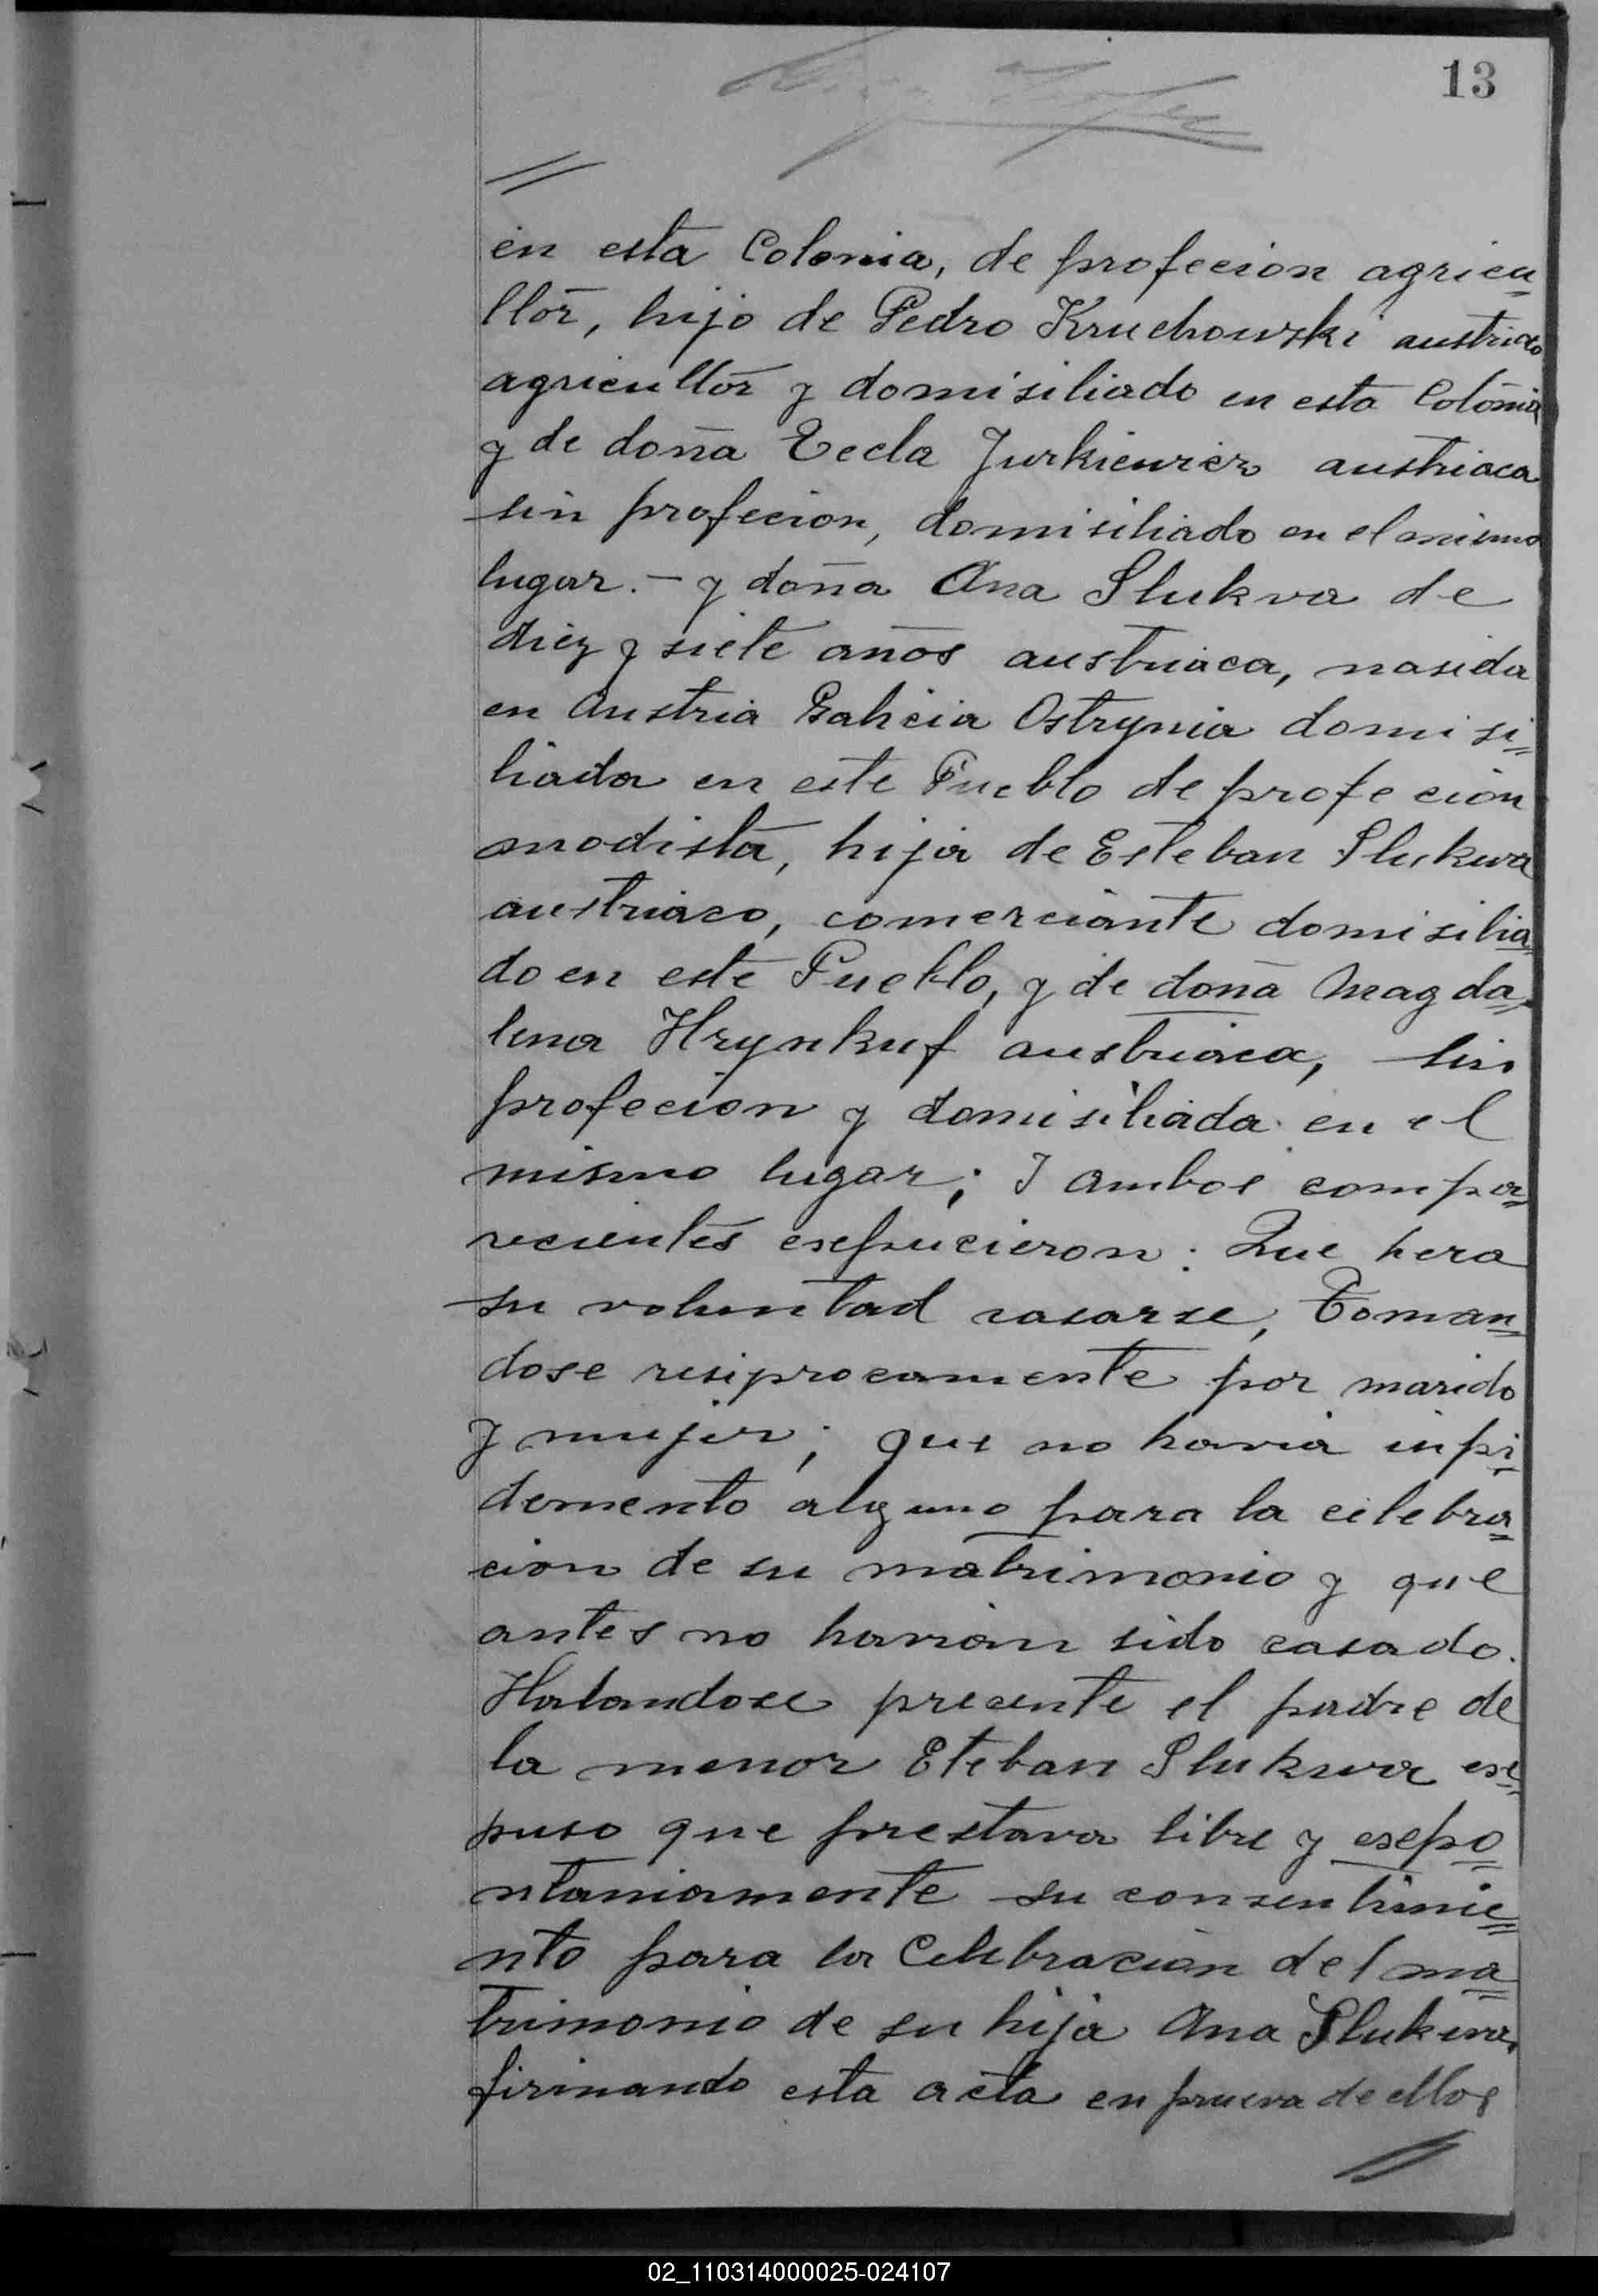 13
en esta Colonia, de profecion agricu
ltor, hijo de Pedro Kruchowski austriaco
agricultor y domisiliado en esta Colonia
y de doña Tecla Jurkiewicz austriaca
sin profecion, domisiliado en el mismo
lugar. – y doña Ana Slukva de
diez y siete años austriaca, nasida
en Austria Galicia Ostrynia domisi=
liada en este Pueblo de profecion
modista, hija de Esteban Slukwa
austriaco, comerciante domisilia
do en este Pueblo, y de doña Magda=
lena Hrynkuf austriaca, sin
profecion y domisiliada en el
mismo lugar; I ambos compa=
recientes espucieron: Que hera
su voluntad casarse, Toman=
dose resiprocamente por marido
y mujer; que no havia inpi=
demento alguno para la celebra=
cion de su matrimonio y que
antes no havian sido casado.
Halandose precente el padre de
la menor Eteban Slukwa es=
puso que prestava libre y espo=
ntaniamente su consentimie=
nto para la Celebracion del ma=
trimonio de su hija Ana Slukwa,
firmando esta acta en prueva de ellos
02_110314000025-024107